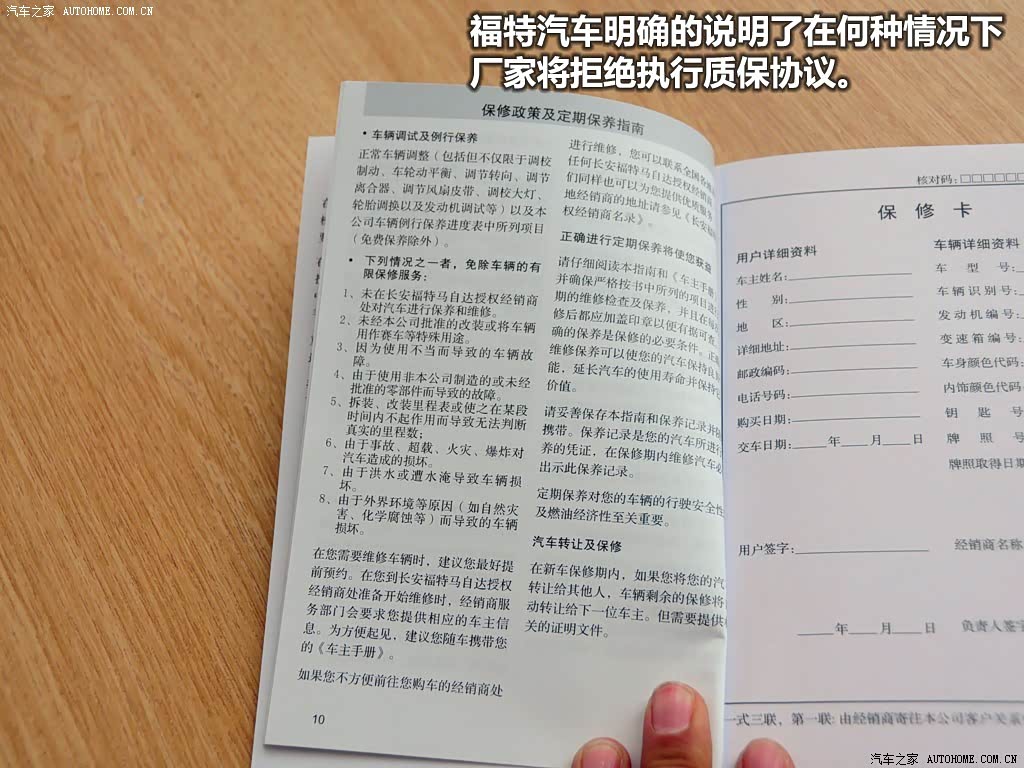 汽车之家 AUTOHOME.COM.CN
福特汽车明确的说明了在何种情况下
厂家将拒绝执行质保协议。
保修政策及定期保养指南
• 车辆调试及例行保养
正常车辆调整（包括但不仅限于调校
制动、车轮动平衡、调节转向、调节
离合器、调节风扇皮带、调校大灯、
轮胎调换以及发动机调试等）以及本
公司车辆例行保养进度表中所列项目
（免费保养除外）。
• 下列情况之一者，免除车辆的有
限保修服务：
1、未在长安福特马自达授权经销商
处对汽车进行保养和维修。
2、未经本公司批准的改装或将车辆
用作赛车等特殊用途。
3、因为使用不当而导致的车辆故
障。
4、由于使用非本公司制造的或未经
批准的零部件而导致的故障。
5、拆装、改装里程表或使之在某段
时间内不起作用而导致无法判断
真实的里程数；
6、由于事故、超载、火灾、爆炸对
汽车造成的损坏。
7、由于洪水或遭水淹导致车辆损
坏。
8、由于外界环境等原因（如自然灾
害、化学腐蚀等）而导致的车辆
损坏。
在您需要维修车辆时，建议您最好提
前预约。在您到长安福特马自达授权
经销商处准备开始维修时，经销商服
务部门会要求您提供相应的车主信
息。为方便起见，建议您随车携带您
的《车主手册》。
如果您不方便前往您购车的经销商处
10
进行维修，您可以联系全国各地
任何长安福特马自达授权经销商
们同样也可以为您提供优质服务
地经销商的地址请参见《长安福
权经销商名录》。
正确进行定期保养将使您获益
请仔细阅读本指南和《车主手册
并确保严格按书中所列的项目进
期的维修检查及保养，并且在每
修后都应加盖印章以便有据可查
确的保养是保修的必要条件。正
维修保养可以使您的汽车保持良
能，延长汽车的使用寿命并保持
价值。
请妥善保存本指南和保养记录并
携带。保养记录是您的汽车所进行
养的凭证，在保修期内维修汽车必
出示此保养记录。
定期保养对您的车辆的行驶安全性
及燃油经济性至关重要。
汽车转让及保修
在新车保修期内，如果您将您的汽
转让给其他人，车辆剩余的保修将
动转让给下一位车主。但需要提供
关的证明文件。
核对码：□□□□□□
保 修 卡
用户详细资料
车主姓名:
性 别:
地 区:
详细地址:
邮政编码:
电话号码:
购买日期:
交车日期:____年____月____日
车辆详细资料
车 型 号:
车辆识别号:
发动机编号:
变速箱编号:
车身颜色代码:
内饰颜色代码:
钥 匙 号
牌 照 号
牌照取得日期
用户签字:
经销商名称
____年____月____日
负责人签字
一式三联，第一联: 由经销商寄往本公司客户关系
汽车之家 AUTOHOME.COM.CN